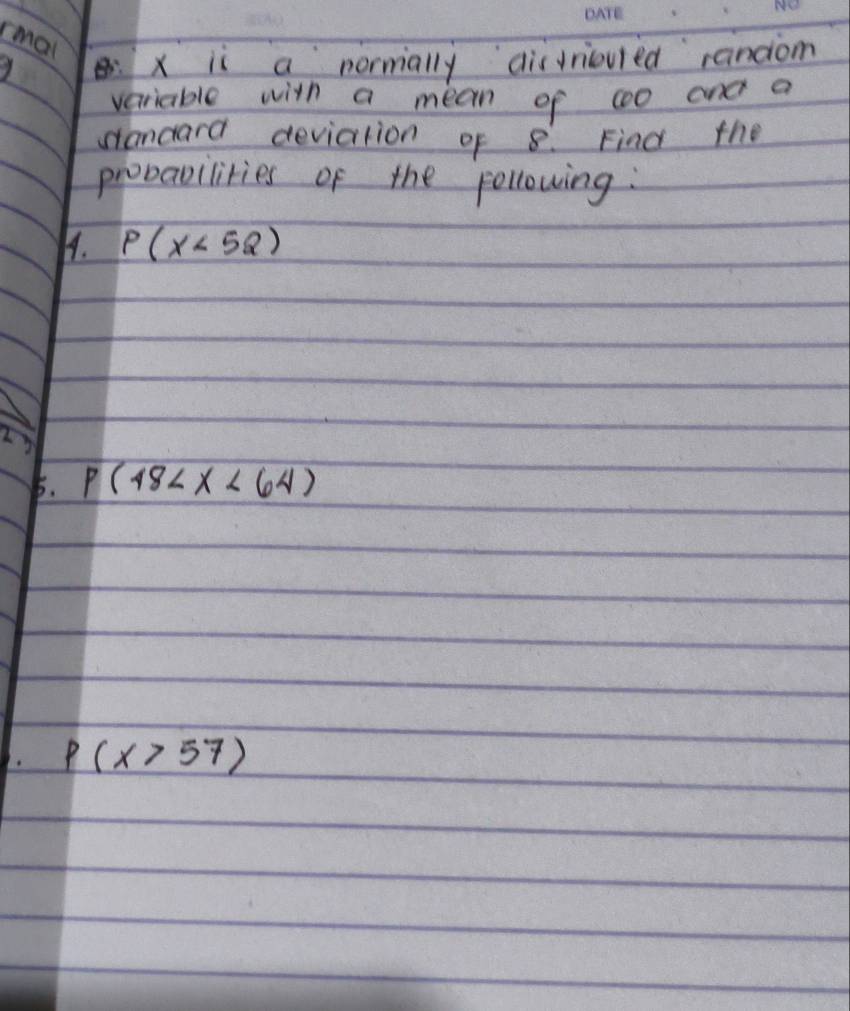 DATE NO
rmal
B: X is a normally distributed random
variable with a mean of 60 and a
standard deviation of 8. Find the
probabilities of the following:
4. P(X < 52)
5. P(48 < X < 64)
. P(X > 57)